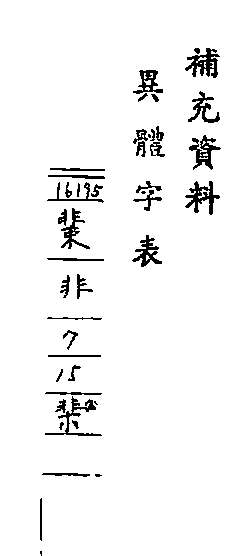 補充資料
異體字表
16195
非
7
15